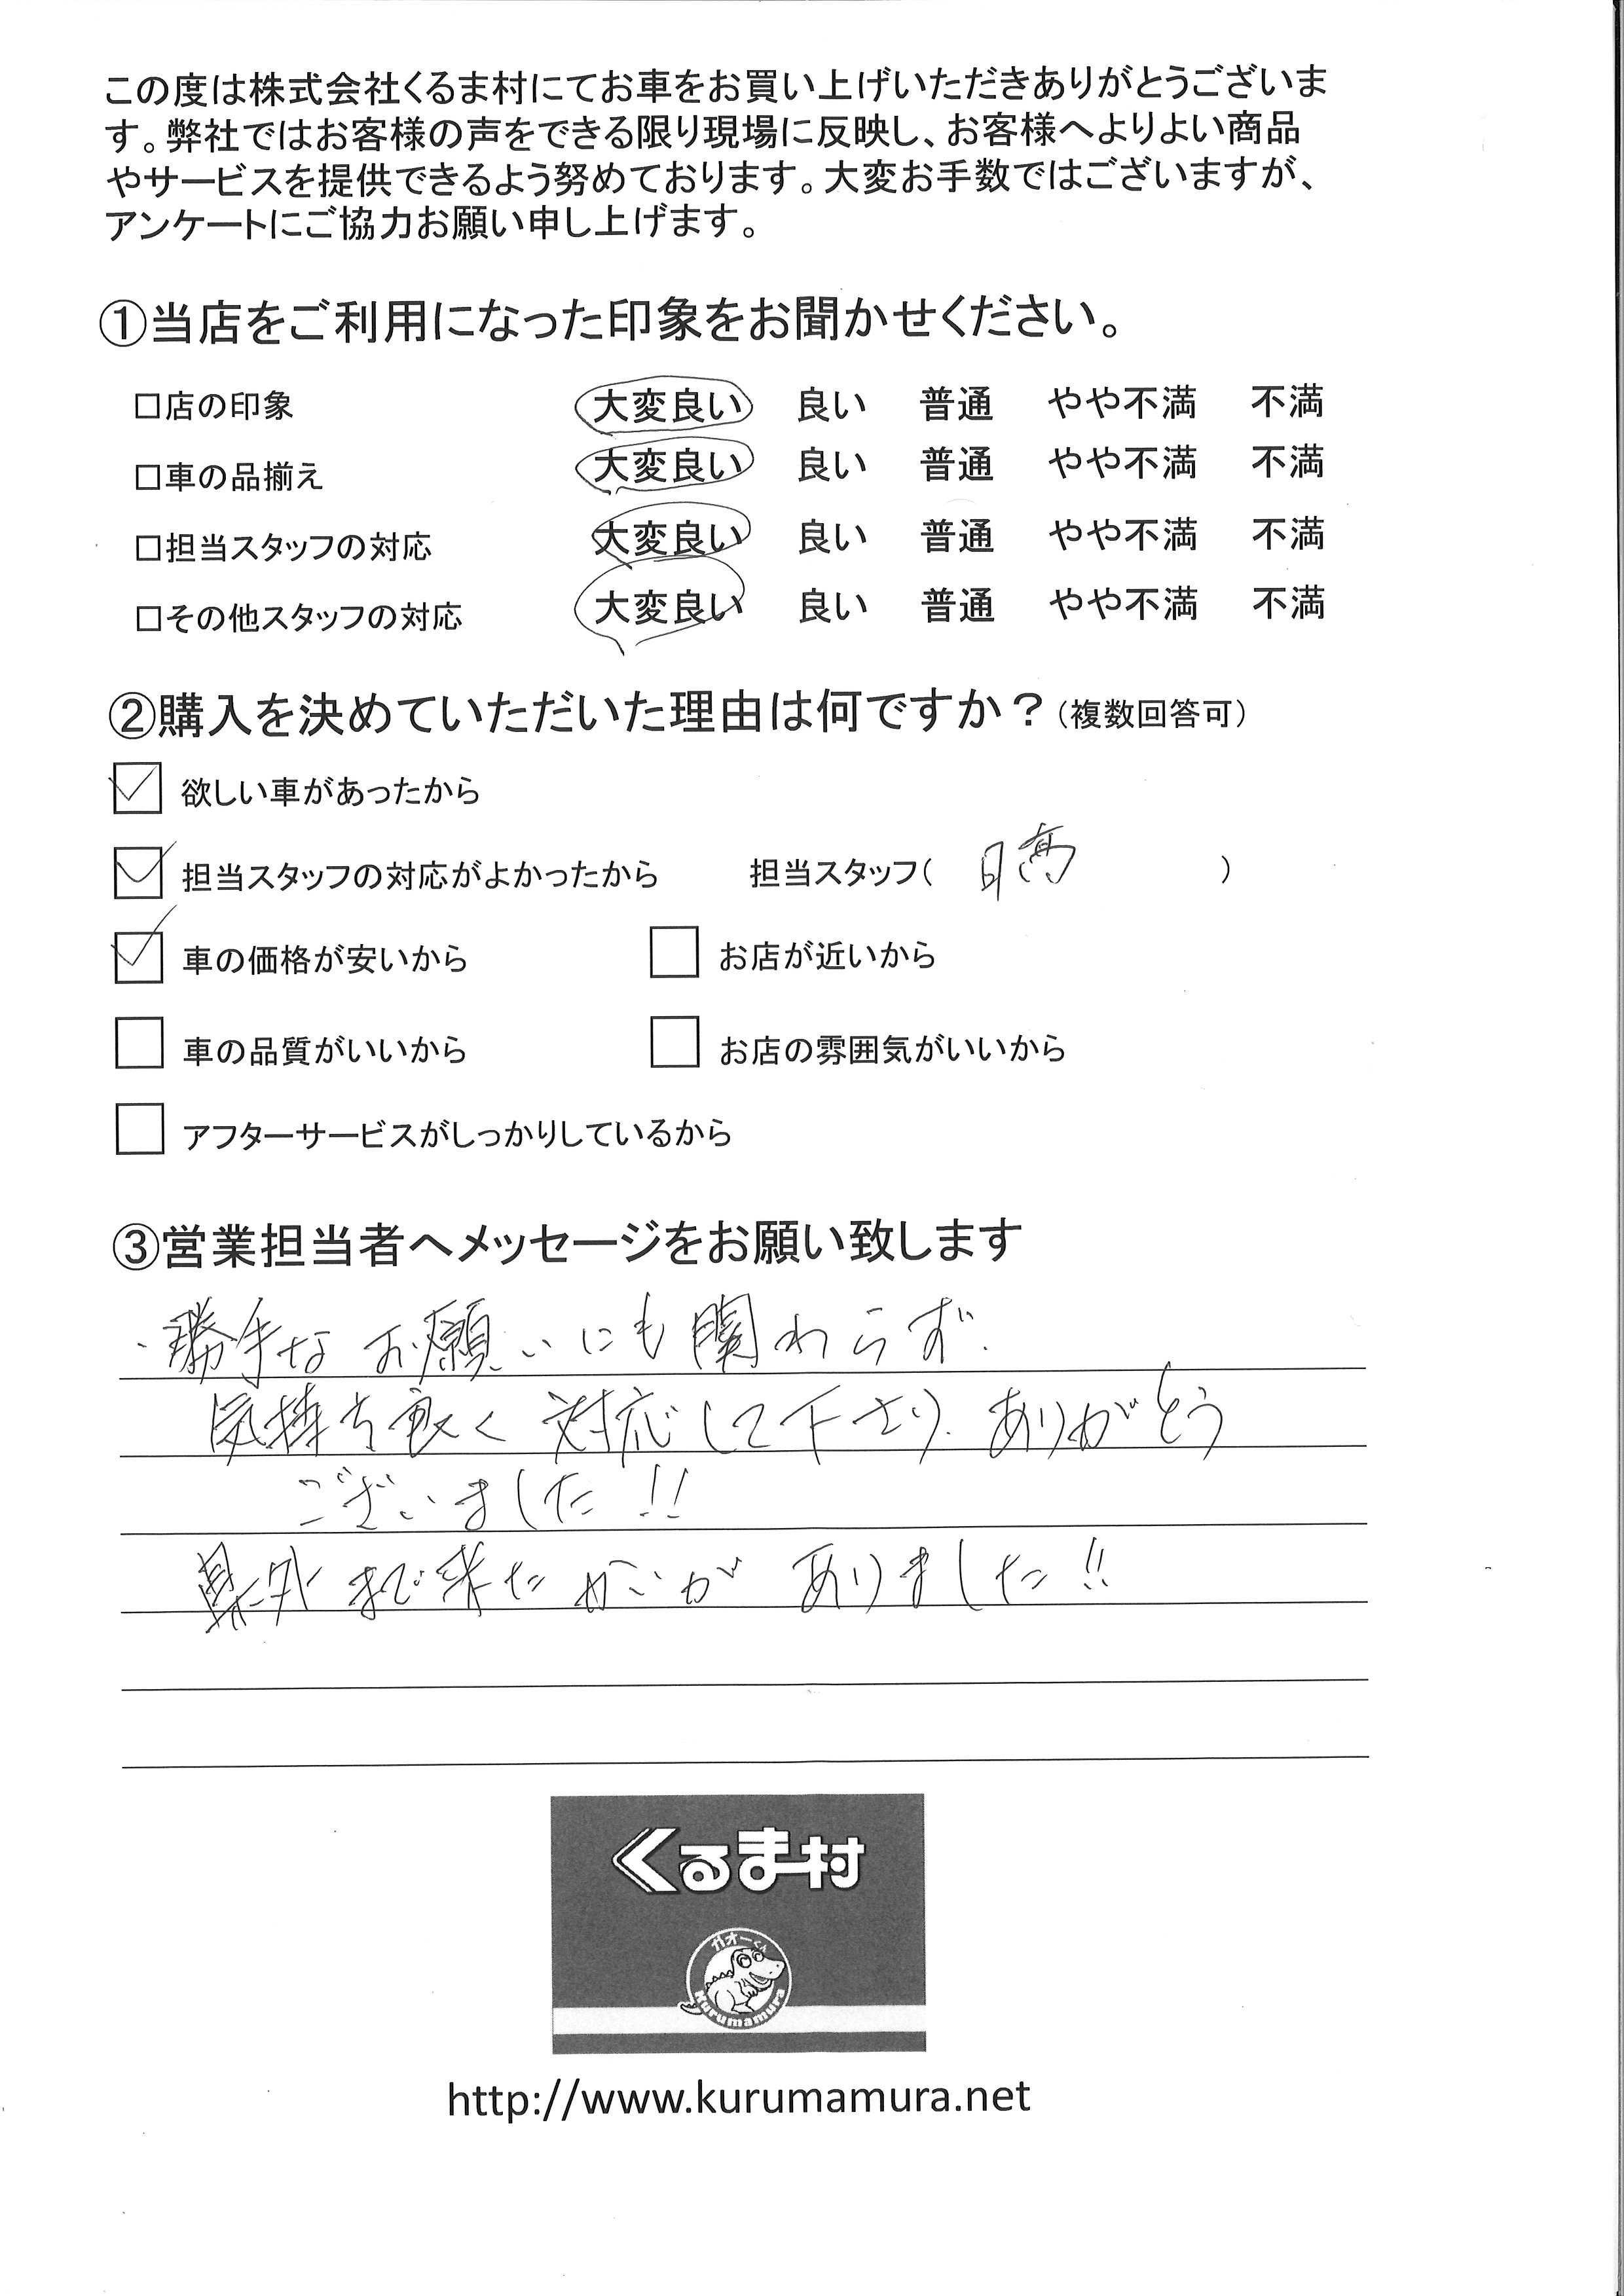 この度は株式会社くるま村にてお車をお買い上げいただきありがとうございま
す。弊社ではお客様の声をできる限り現場に反映し、お客様へよりよい商品
やサービスを提供できるよう努めております。大変お手数ではございますが、
アンケートにご協力お願い申し上げます。
①当店をご利用になった印象をお聞かせください。
□店の印象 大変良い 良い 普通 やや不満 不満
□車の品揃え 大変良い 良い 普通 やや不満 不満
□担当スタッフの対応 大変良い 良い 普通 やや不満 不満
□その他スタッフの対応 大変良い 良い 普通 やや不満 不満
②購入を決めていただいた理由は何ですか？（複数回答可）
欲しい車があったから
担当スタッフの対応がよかったから 担当スタッフ( 日高 )
車の価格が安いから お店が近いから
車の品質がいいから お店の雰囲気がいいから
アフターサービスがしっかりしているから
③営業担当者へメッセージをお願い致します
・勝手なお願いにも関わらず、
気持ち良く対応して下さり、ありがとう
ございました!!
県外まで来たかいがありました!!
くるま村
ガオーくん
Kurumamura
http://www.kurumamura.net